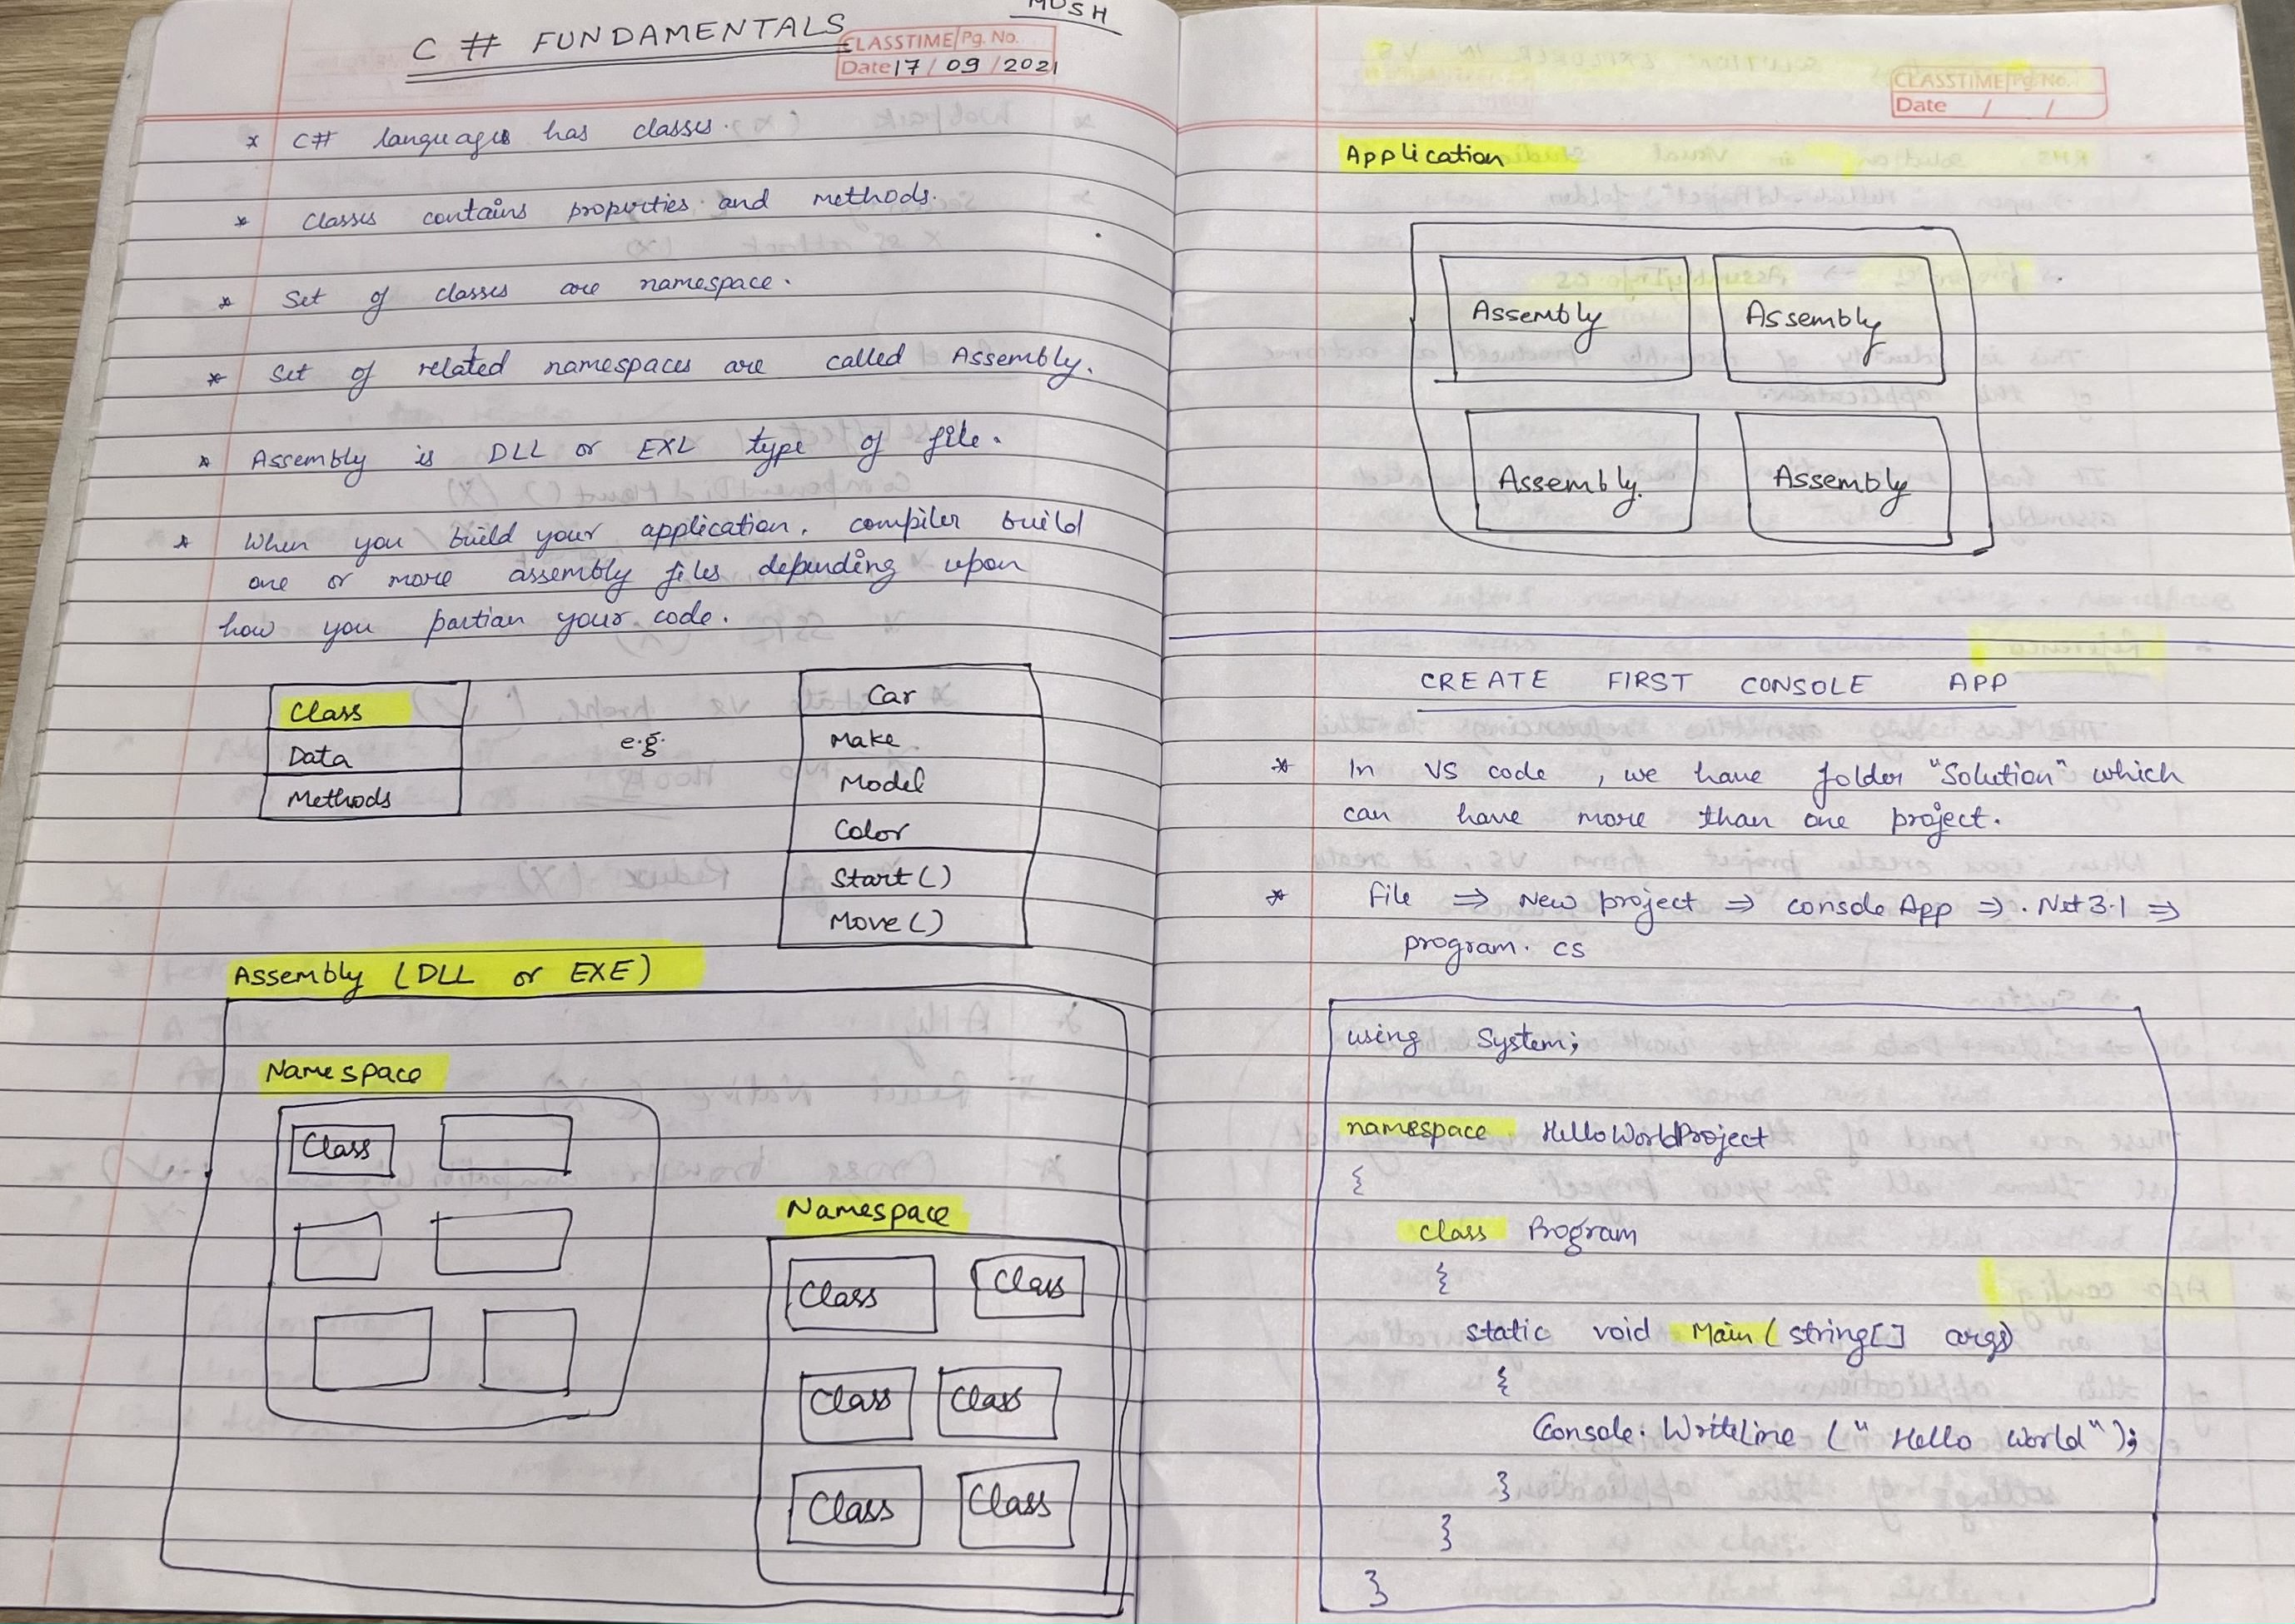 MOSH
C # FUNDAMENTALS
CLASSTIME Pg. No.
Date 17 / 09 / 2021
* C# languages has classes.
* Classes contains properties and methods.
* Set of classes are namespace.
* Set of related namespaces are called Assembly.
* Assembly is DLL or EXE type of file.
* When you build your application, compiler build
one or more assembly files depending upon
how you partian your code.
Class
Data
Methods
e.g.
Car
Make
Model
Color
Start()
Move()
Assembly (DLL or EXE)
Namespace
Class
Namespace
Class Class
Class Class
Class Class
CLASSTIME Pg. No.
Date / /
Application
Assembly Assembly
Assembly. Assembly
CREATE FIRST CONSOLE APP
* In VS code, we have folder "Solution" which
can have more than one project.
* File ⇒ New project ⇒ console App ⇒ .Net 3.1 ⇒
program. cs
using System;
namespace HelloWorldProject
{
class Program
{
static void Main(string[] args)
{
Console.WriteLine ("Hello World");
}
}
}